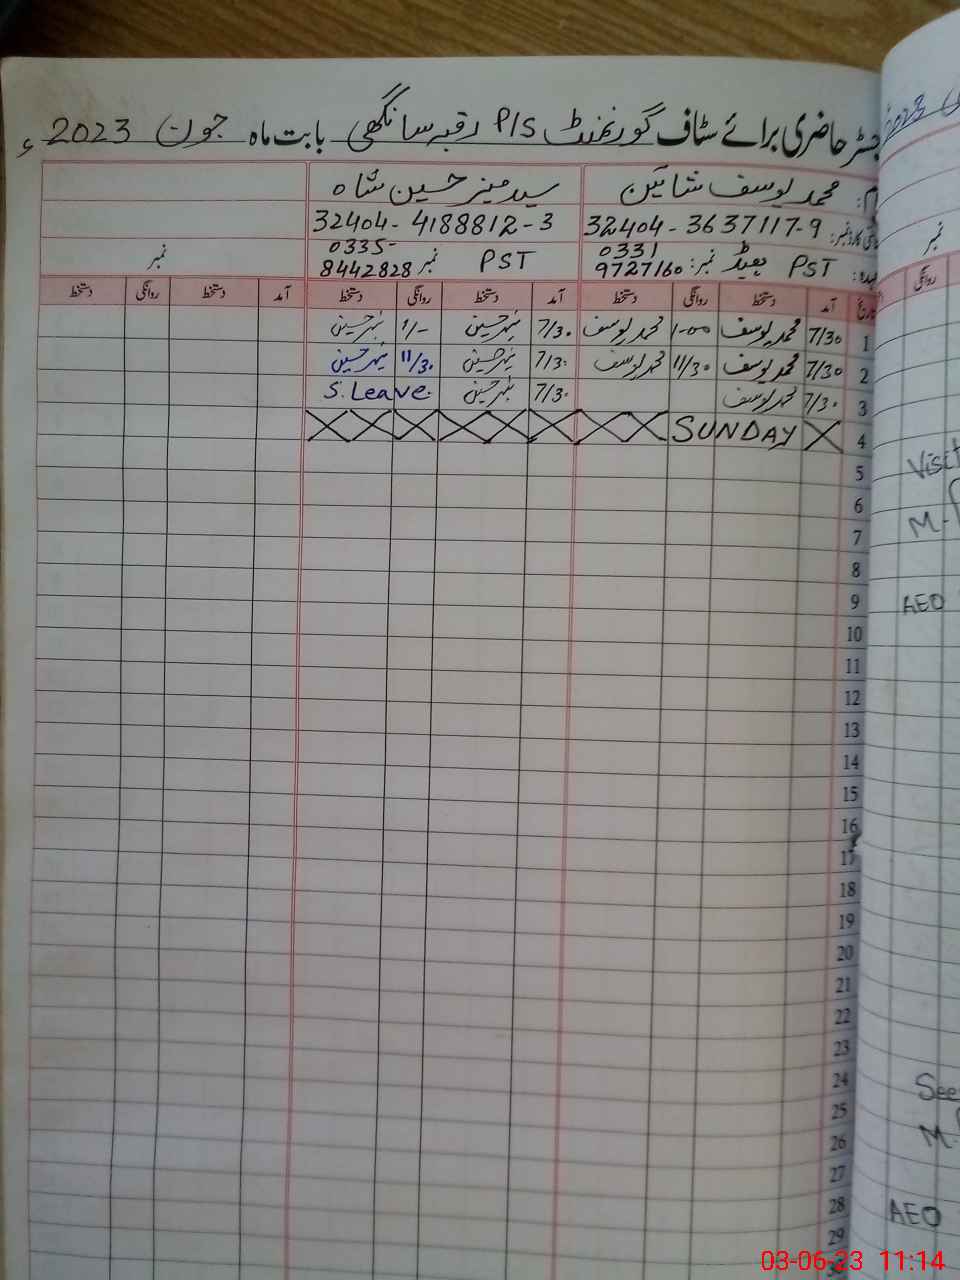 جسٹر حاضری برائے سٹاف گورنمنٹ P/S رقبہ سانگھی بابت ماہ جون 2023 ء
محمد یوسف شاہین سید منیر حسین شاہ
32404-3637117-9 32404-4188812-3
PST ہیڈ نمبر: 0331 9727160 PST نمبر 0335- 8442828 نمبر
تاریخ آمد دستخط روانگی دستخط آمد دستخط روانگی دستخط آمد دستخط روانگی دستخط
1 7/30 محمد یوسف 1-00 محمد یوسف 7/30 منیر حسین 1/- منیر حسین
2 7/30 محمد یوسف 11/30 محمد یوسف 7/30 منیر حسین 11/30 منیر حسین
3 7/30 محمد یوسف 7/30 منیر حسین S. Leave.
4 SUNDAY
5
6
7
8
9
10
11
12
13
14
15
16
17
18
19
20
21
22
23
24
25
26
27
28
29
2023
نمبر
روانگی
Visit
M.
AEO
See
M.
AEO
03-06-23 11:14